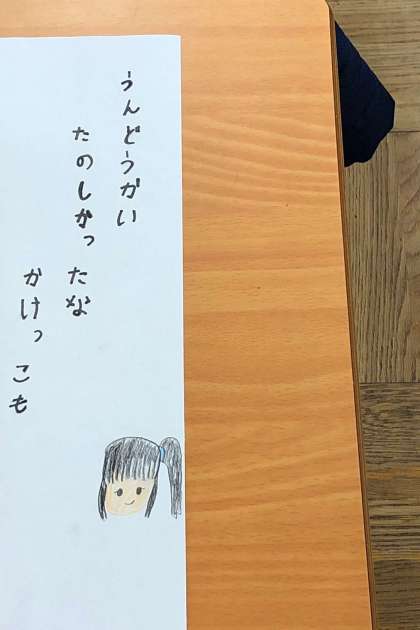 うんどうかい
たのしかったな
かけっこも